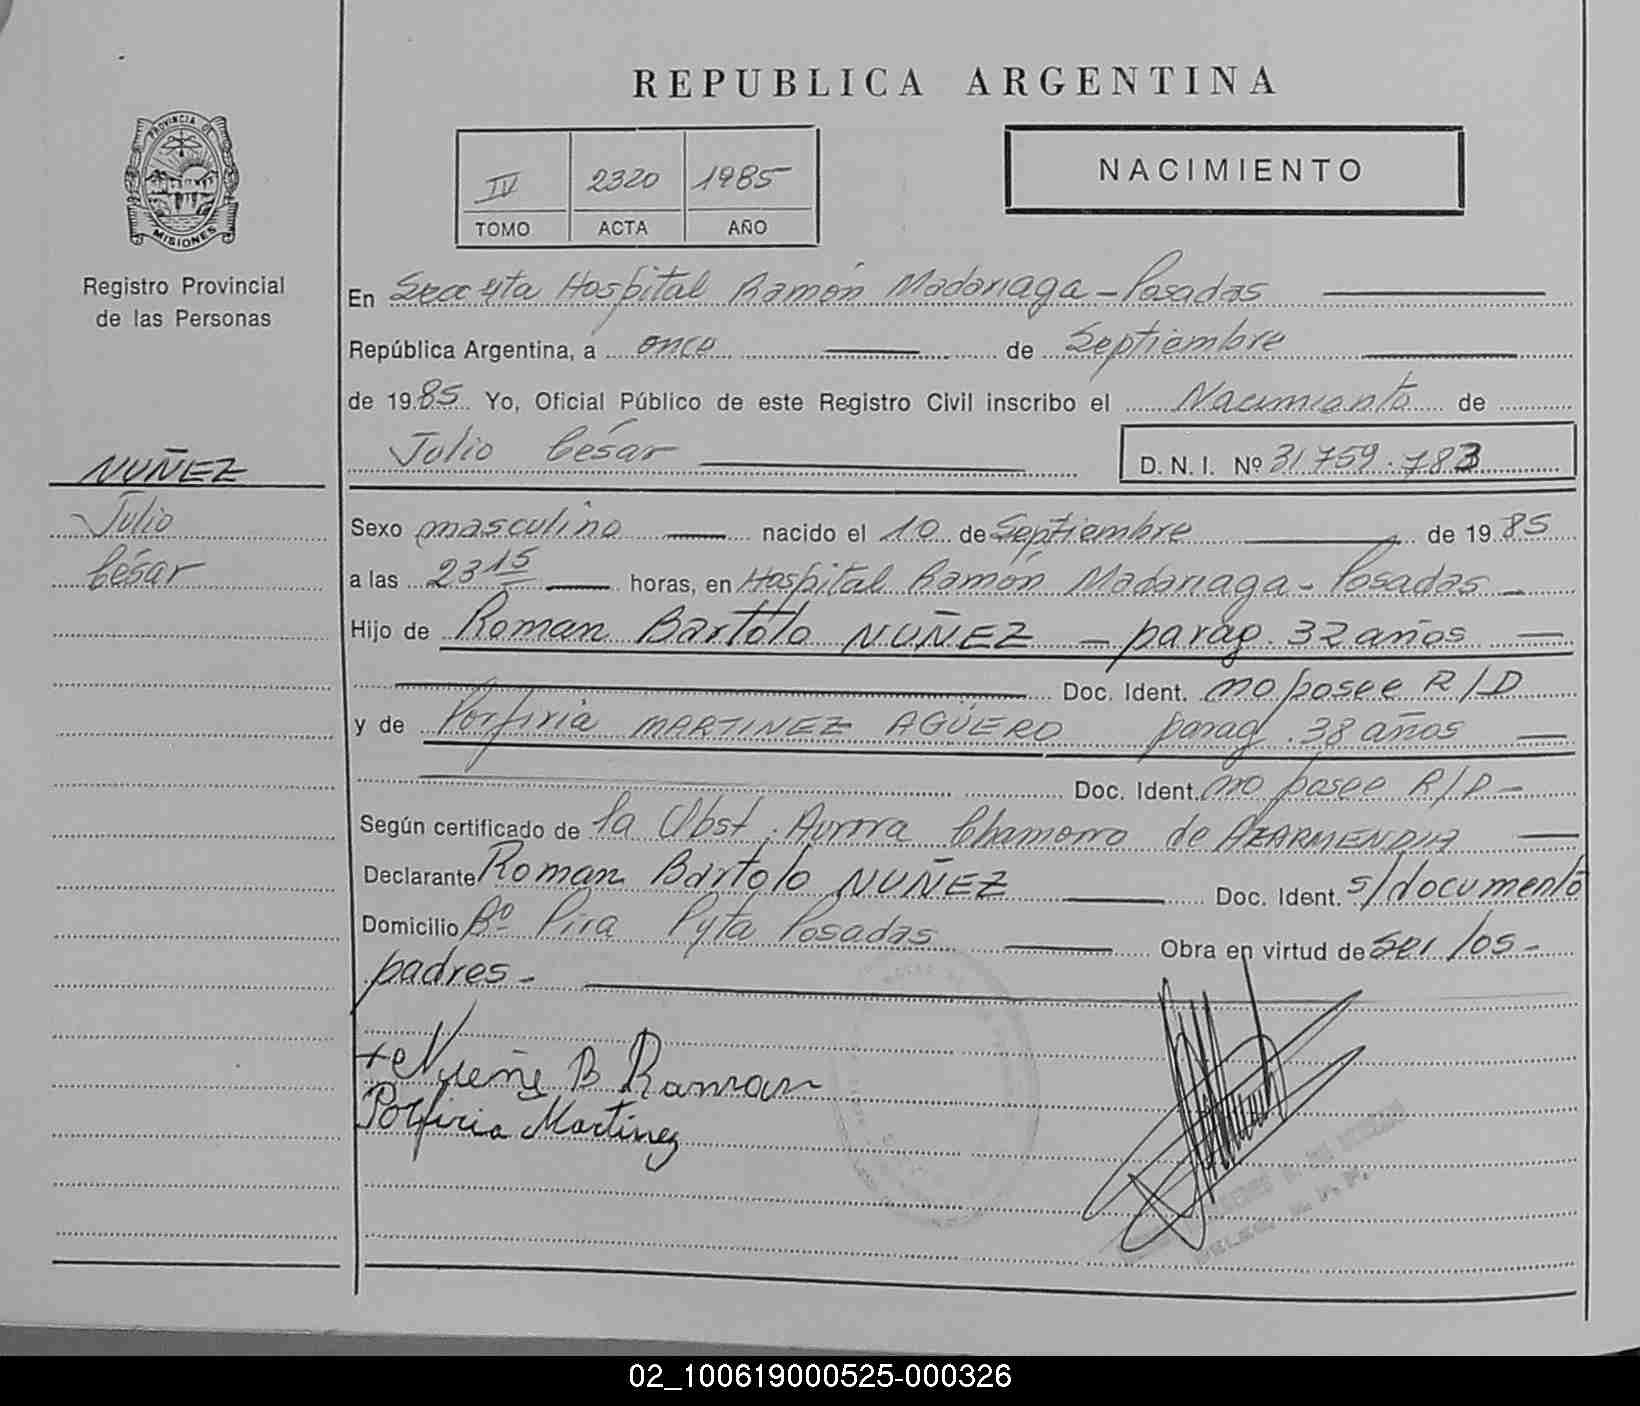 REPUBLICA ARGENTINA
PROVINCIA DE
MISIONES
Registro Provincial
de las Personas
IV 2320 1985
TOMO ACTA AÑO
NACIMIENTO
En Hospital Ramón Madariaga - Posadas
República Argentina, a once de Septiembre
de 1985 Yo, Oficial Público de este Registro Civil inscribo el Nacimiento de
Julio César
D. N. I. Nº 31.759.783
NUÑEZ
Julio
César
Sexo masculino nacido el 10 de Septiembre de 1985
a las 23 15 horas, en Hospital Ramón Madariaga - Posadas
Hijo de Roman Bartolo NUÑEZ - parag. 32 años
Doc. Ident. no posee R/D
y de Porfiria MARTINEZ AGÜERO parag. 38 años
Doc. Ident. no posee R/D -
Según certificado de la Obst. Aurora Chamorro de AZARMENDIA
Declarante Roman Bartolo NUÑEZ Doc. Ident. s/documento
Domicilio Bº Pira Pyta Posadas Obra en virtud de ser los -
padres -
B Raman
Porfiria Martinez
02_100619000525-000326